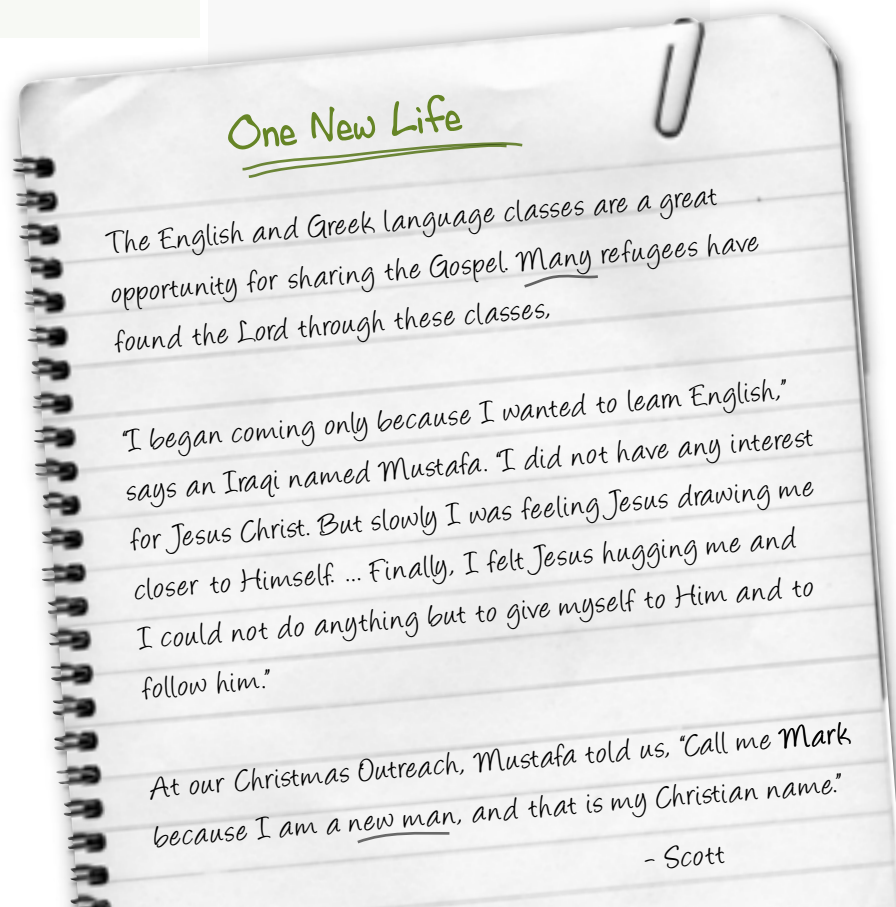 One New Life
The English and Greek language classes are a great
opportunity for sharing the Gospel. Many refugees have
found the Lord through these classes,
"I began coming only because I wanted to learn English,"
says an Iraqi named Mustafa. "I did not have any interest
for Jesus Christ. But slowly I was feeling Jesus drawing me
closer to Himself. ... Finally, I felt Jesus hugging me and
I could not do anything but to give myself to Him and to
follow him."
At our Christmas Outreach, Mustafa told us, "Call me Mark
because I am a new man, and that is my Christian name."
- Scott